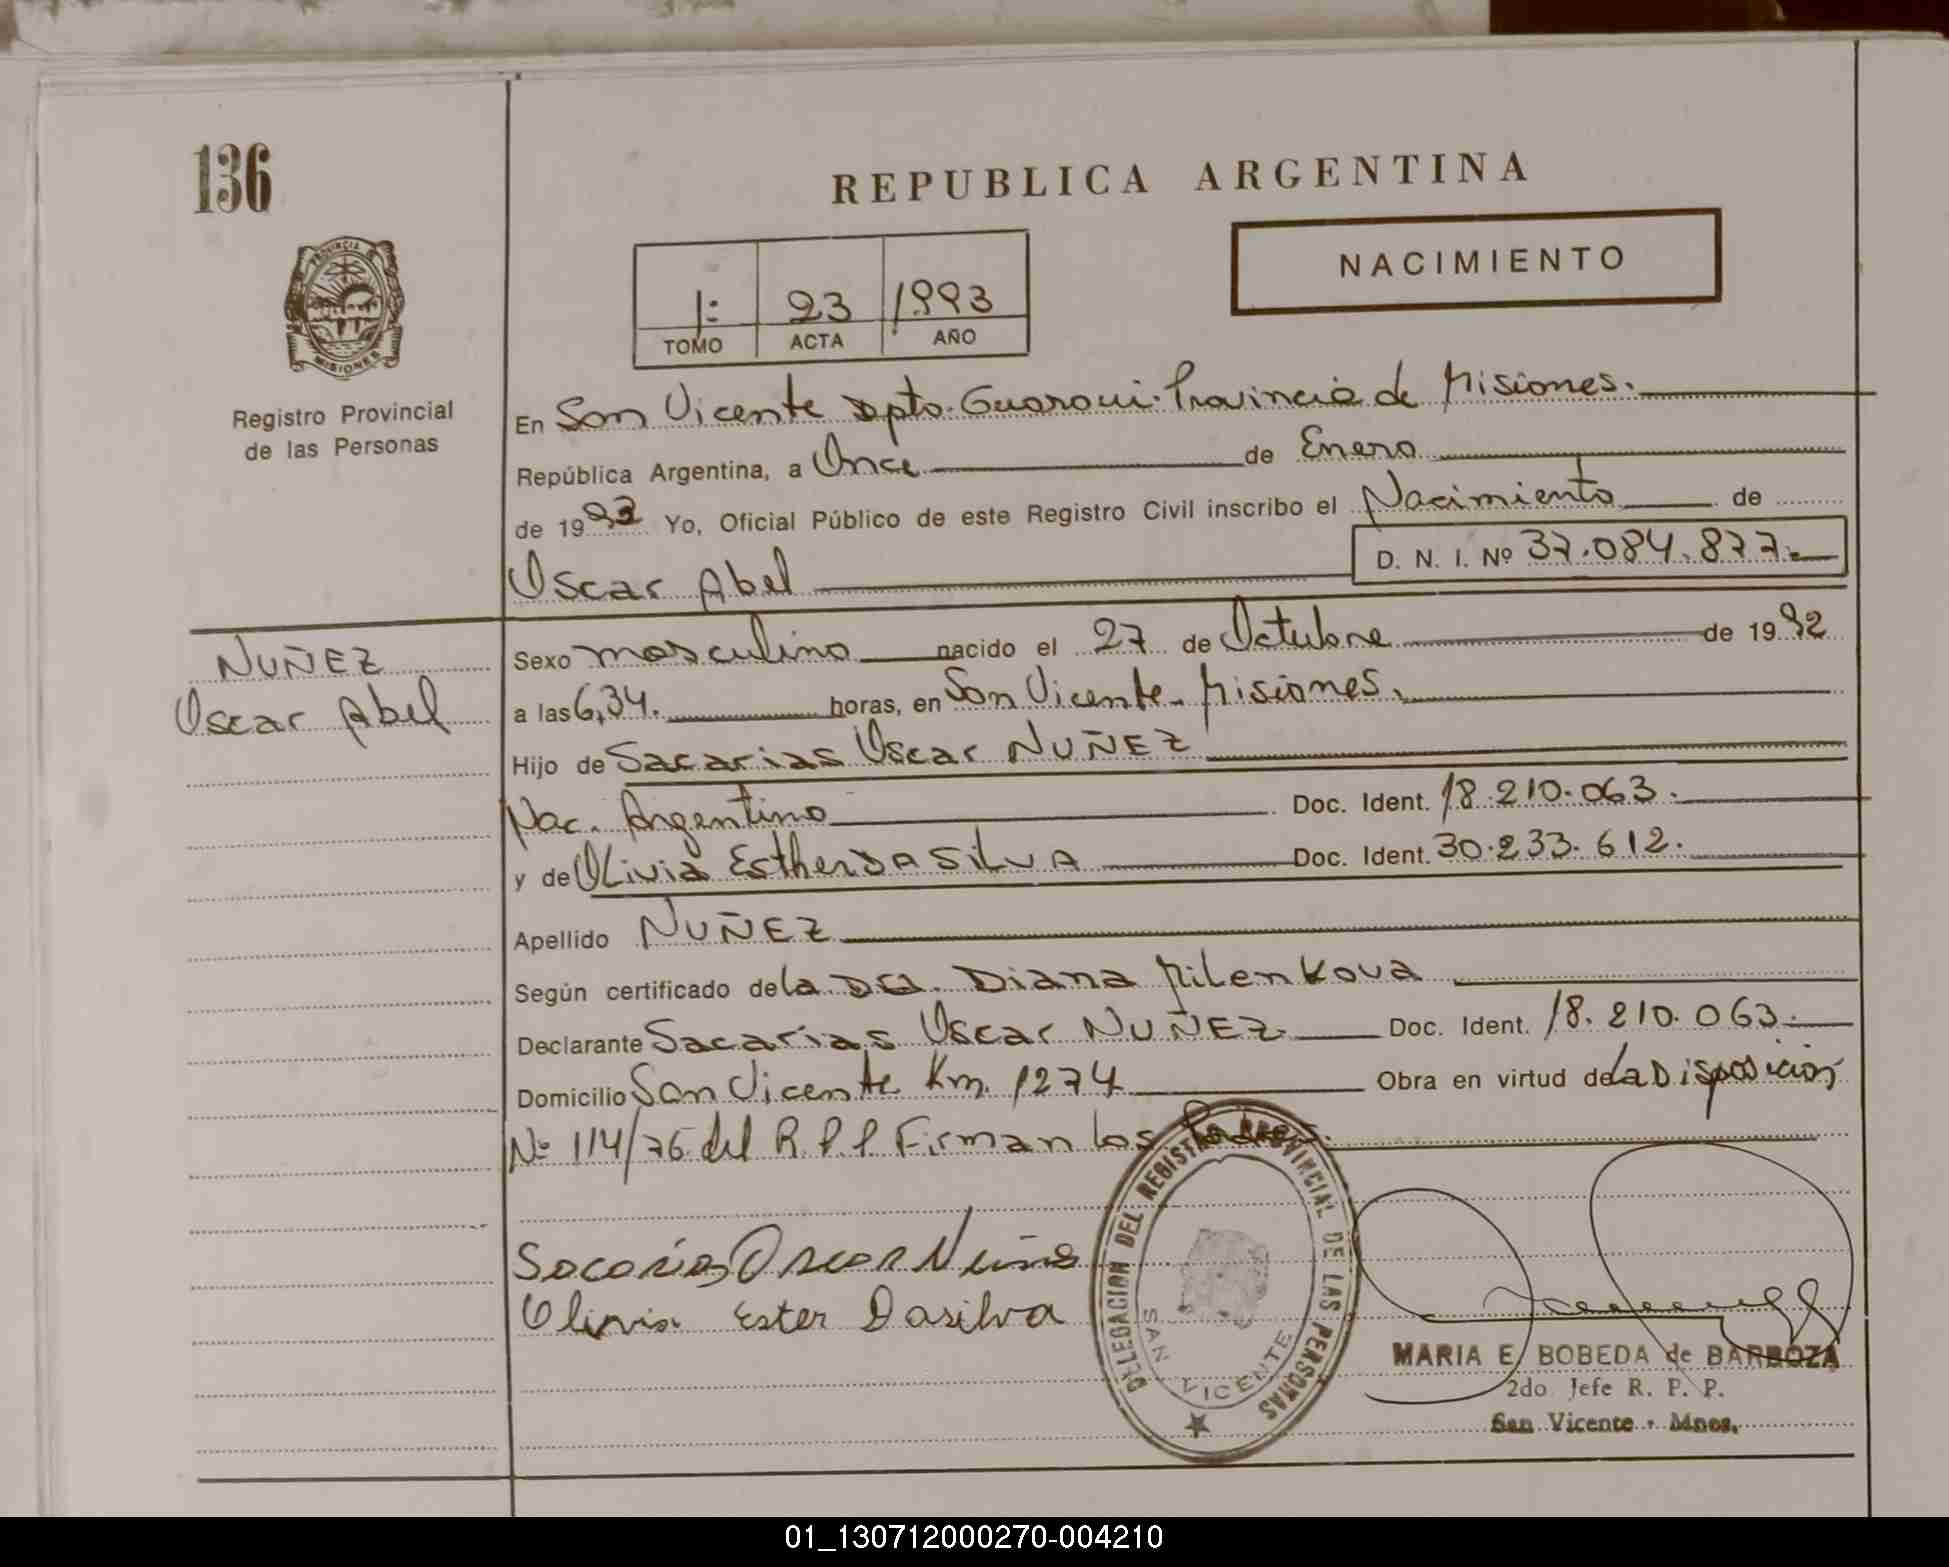 136
REPUBLICA ARGENTINA
NACIMIENTO
1: 23 1993
TOMO ACTA AÑO
PROVINCIA DE MISIONES
Registro Provincial
de las Personas
En San Vicente Dpto. Guarani. Provincia de Misiones.
República Argentina, a Once de Enero
de 1993 Yo, Oficial Público de este Registro Civil inscribo el Nacimiento de
D. N. I. Nº 37.084.877.-
Oscar Abel
NUÑEZ
Oscar Abel
Sexo masculino nacido el 27 de Octubre de 1992
a las 6,34. horas, en San Vicente - Misiones.
Hijo de Sacarias Oscar NUÑEZ
Nac. Argentino Doc. Ident. 18.210.063.
y de Olivia Esther DA SILVA Doc. Ident. 30.233.612.
Apellido NUÑEZ
Según certificado de la DRA. Diana Milenkova
Declarante Sacarias Oscar NUÑEZ. Doc. Ident. 18.210.063.
Domicilio San Vicente Km. 1274 Obra en virtud de La Disposicion
Nº 114/76 del R.P.P. Firman los Padres.
Sacarias Oscar Nuñes
Olivia Ester Dasilva
DELEGACION DEL REGISTRO PROVINCIAL DE LAS PERSONAS
SAN VICENTE
MARIA E. BOBEDA de BARBOZA
2do. Jefe R. P. P.
San Vicente - Mnes.
01_130712000270-004210